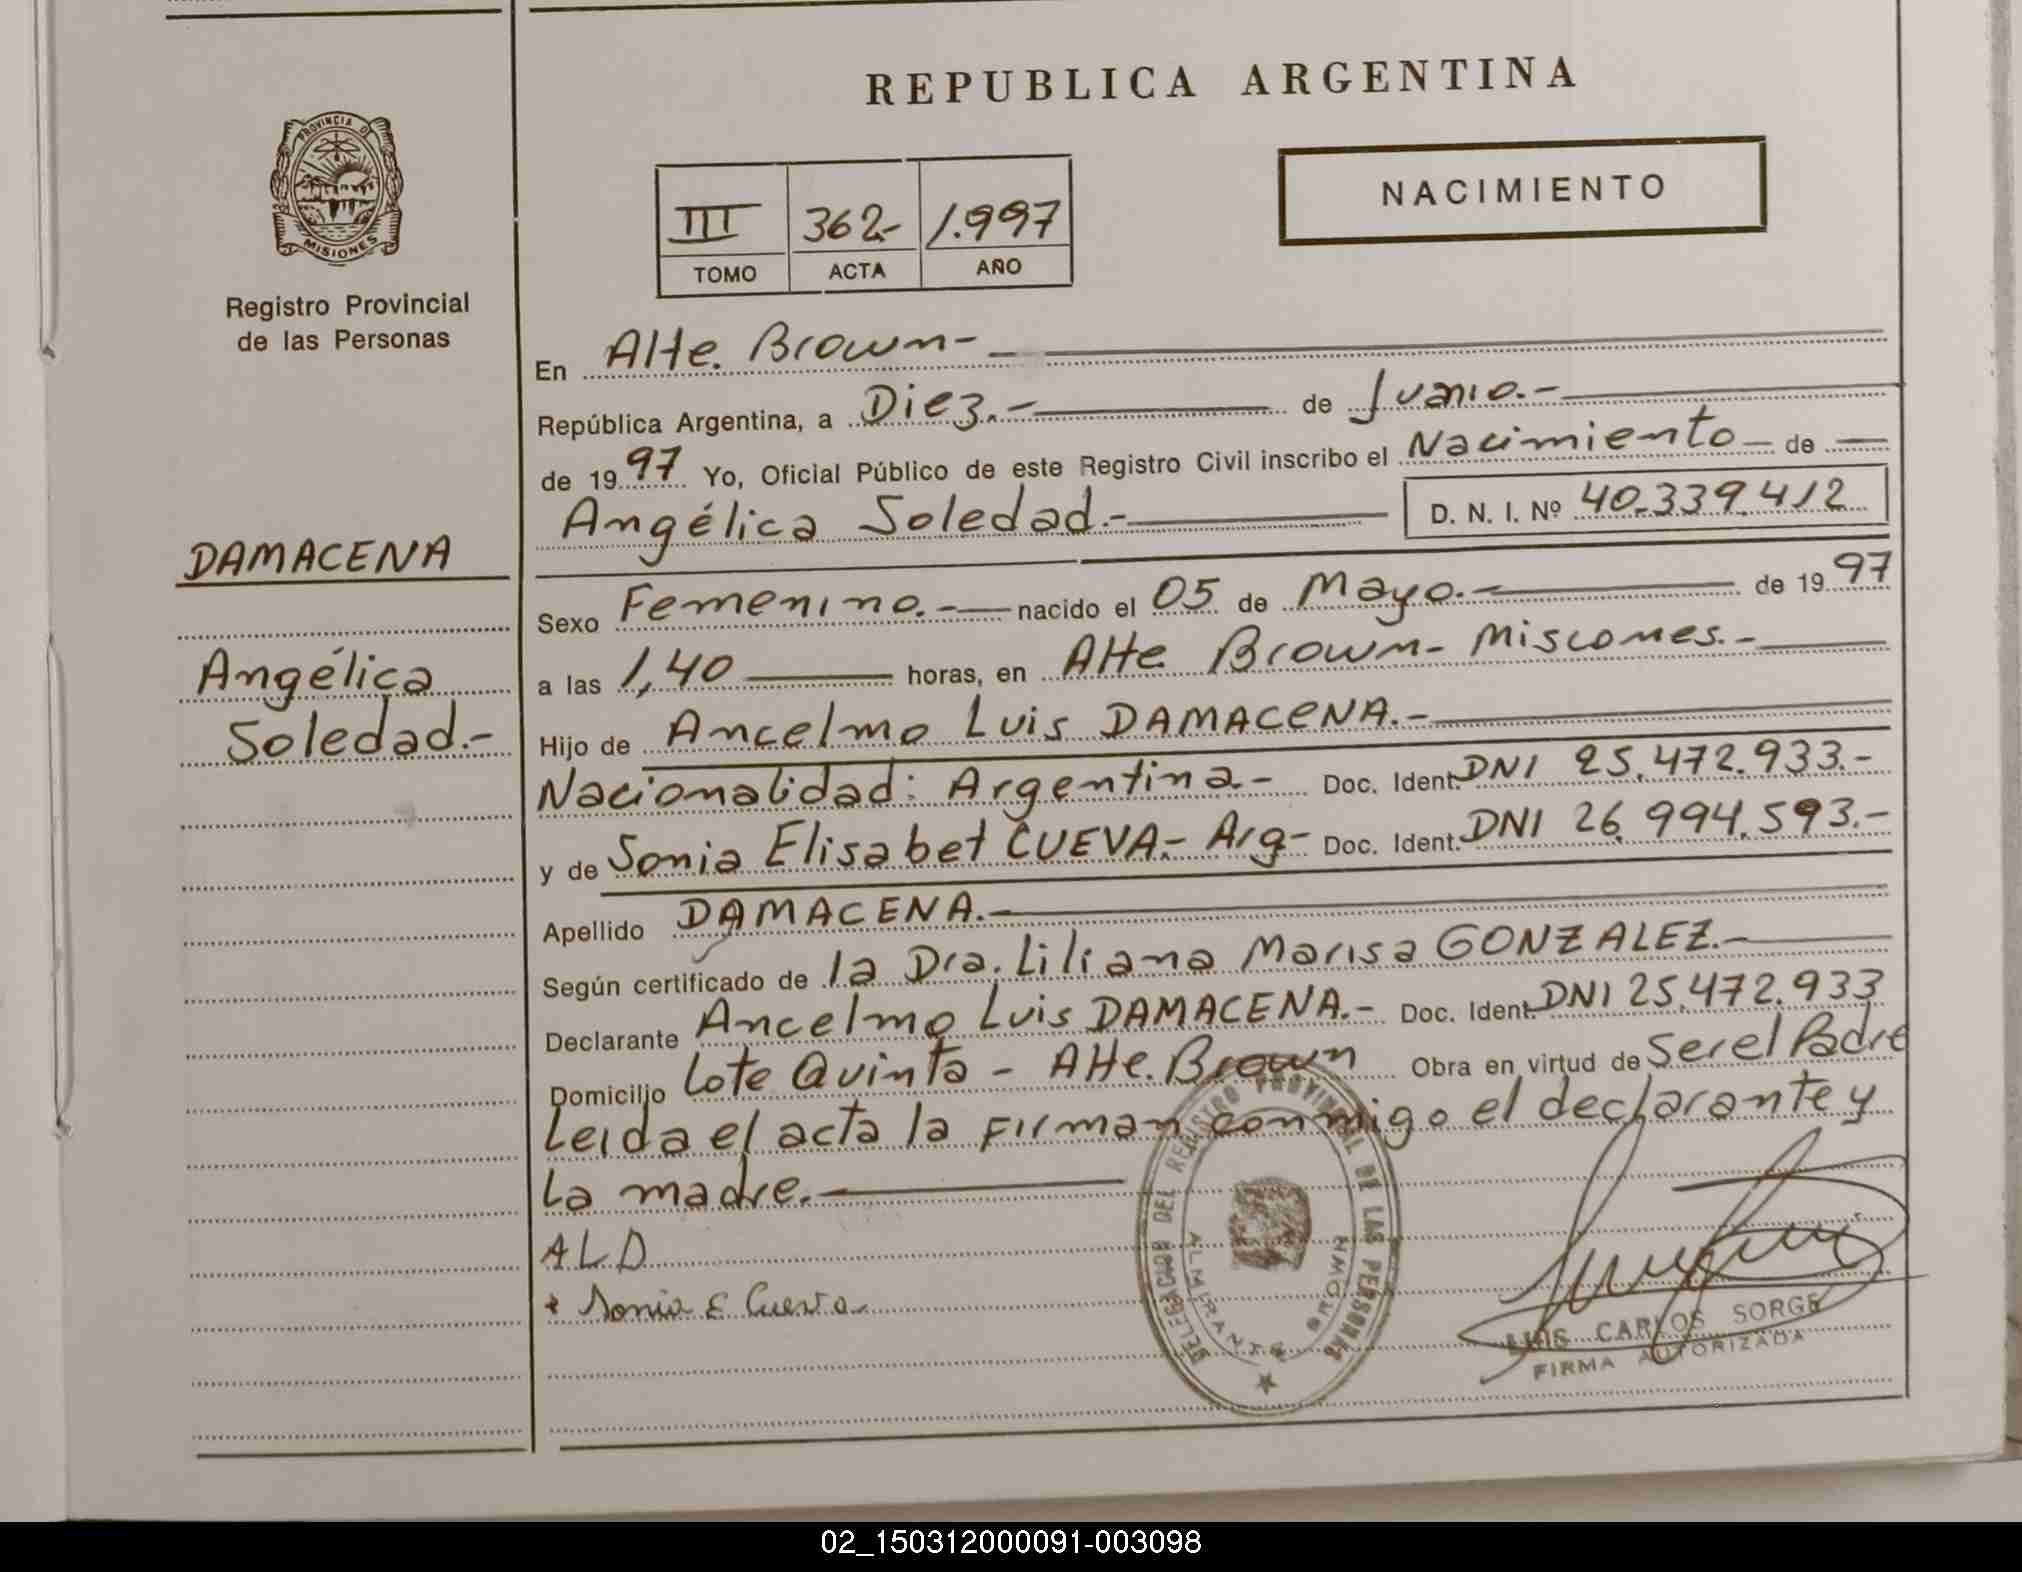 REPUBLICA ARGENTINA
PROVINCIA DE
MISIONES
Registro Provincial
de las Personas
NACIMIENTO
III 362.- 1.997
TOMO ACTA AÑO
En Alte. Brown-
República Argentina, a Diez.- de Junio.-
de 1997 Yo, Oficial Público de este Registro Civil inscribo el Nacimiento de
Angélica Soledad.- D. N. I. Nº 40.339.412
DAMACENA
Angélica
Soledad.-
Sexo Femenino.- nacido el 05 de Mayo.- de 1997
a las 1,40 horas, en Alte Brown- Misiones.-
Hijo de Ancelmo Luis DAMACENA.-
Nacionalidad: Argentina- Doc. Ident. DNI 25.472.933.-
y de Sonia Elisabet CUEVA.- Arg- Doc. Ident. DNI 26.994.593.-
Apellido DAMACENA.-
Según certificado de la Dra. Liliana Marisa GONZALEZ.-
Declarante Ancelmo Luis DAMACENA.- Doc. Ident. DNI 25.472.933
Domicilio Lote Quinta - Alte. Brown Obra en virtud de Ser el Padre
Leida el acta la Firman conmigo el declarante y
La madre.-
A.L.D
Sonia E Cueva
DELEGACION DEL REGISTRO PROVINCIAL DE LAS PERSONAS
ALMIRANTE BROWN
LUIS CARLOS SORGE
FIRMA AUTORIZADA
02_150312000091-003098